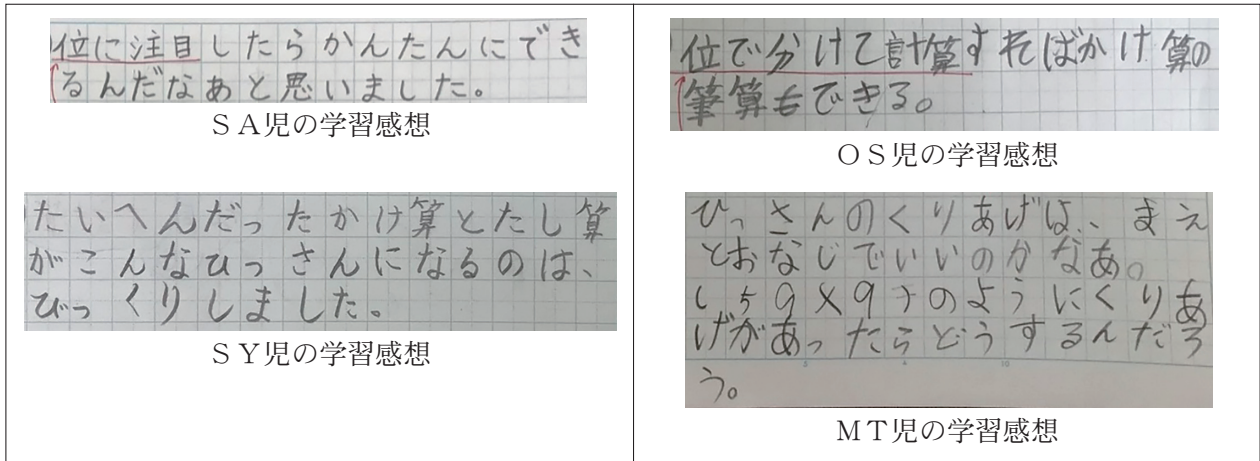 位に注目したらかんたんにでき
るんだなあと思いました。
ＳＡ児の学習感想
たいへんだったかけ算とたし算
がこんなひっさんになるのは、
びっくりしました。
ＳＹ児の学習感想
位で分けて計算すればかけ算の
筆算もできる。
ＯＳ児の学習感想
ひっさんのくりあげは、まえ
とおなじでいいのかなあ。
しき9×9 のようにくりあ
げがあったらどうするんだろ
う。
ＭＴ児の学習感想